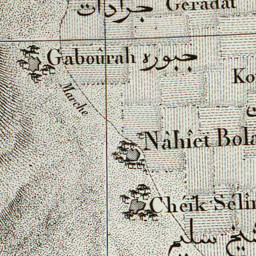 جرادات Geradat
Gaboûrah جبوره
Marche
Nâhîet Bola
Cheïk Selim
شيخ سليم